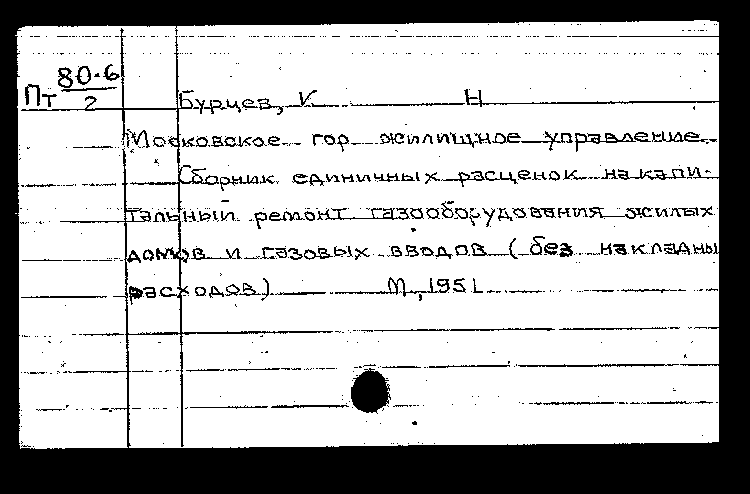 Пт 80-6/2
Бурцев, К Н
Московское гор жилищное управление.
Сборник единичных расценок на капи-
тальный ремонт газооборудования жилых
домов и газовых вводов (без накладны
расходов) М, 1951